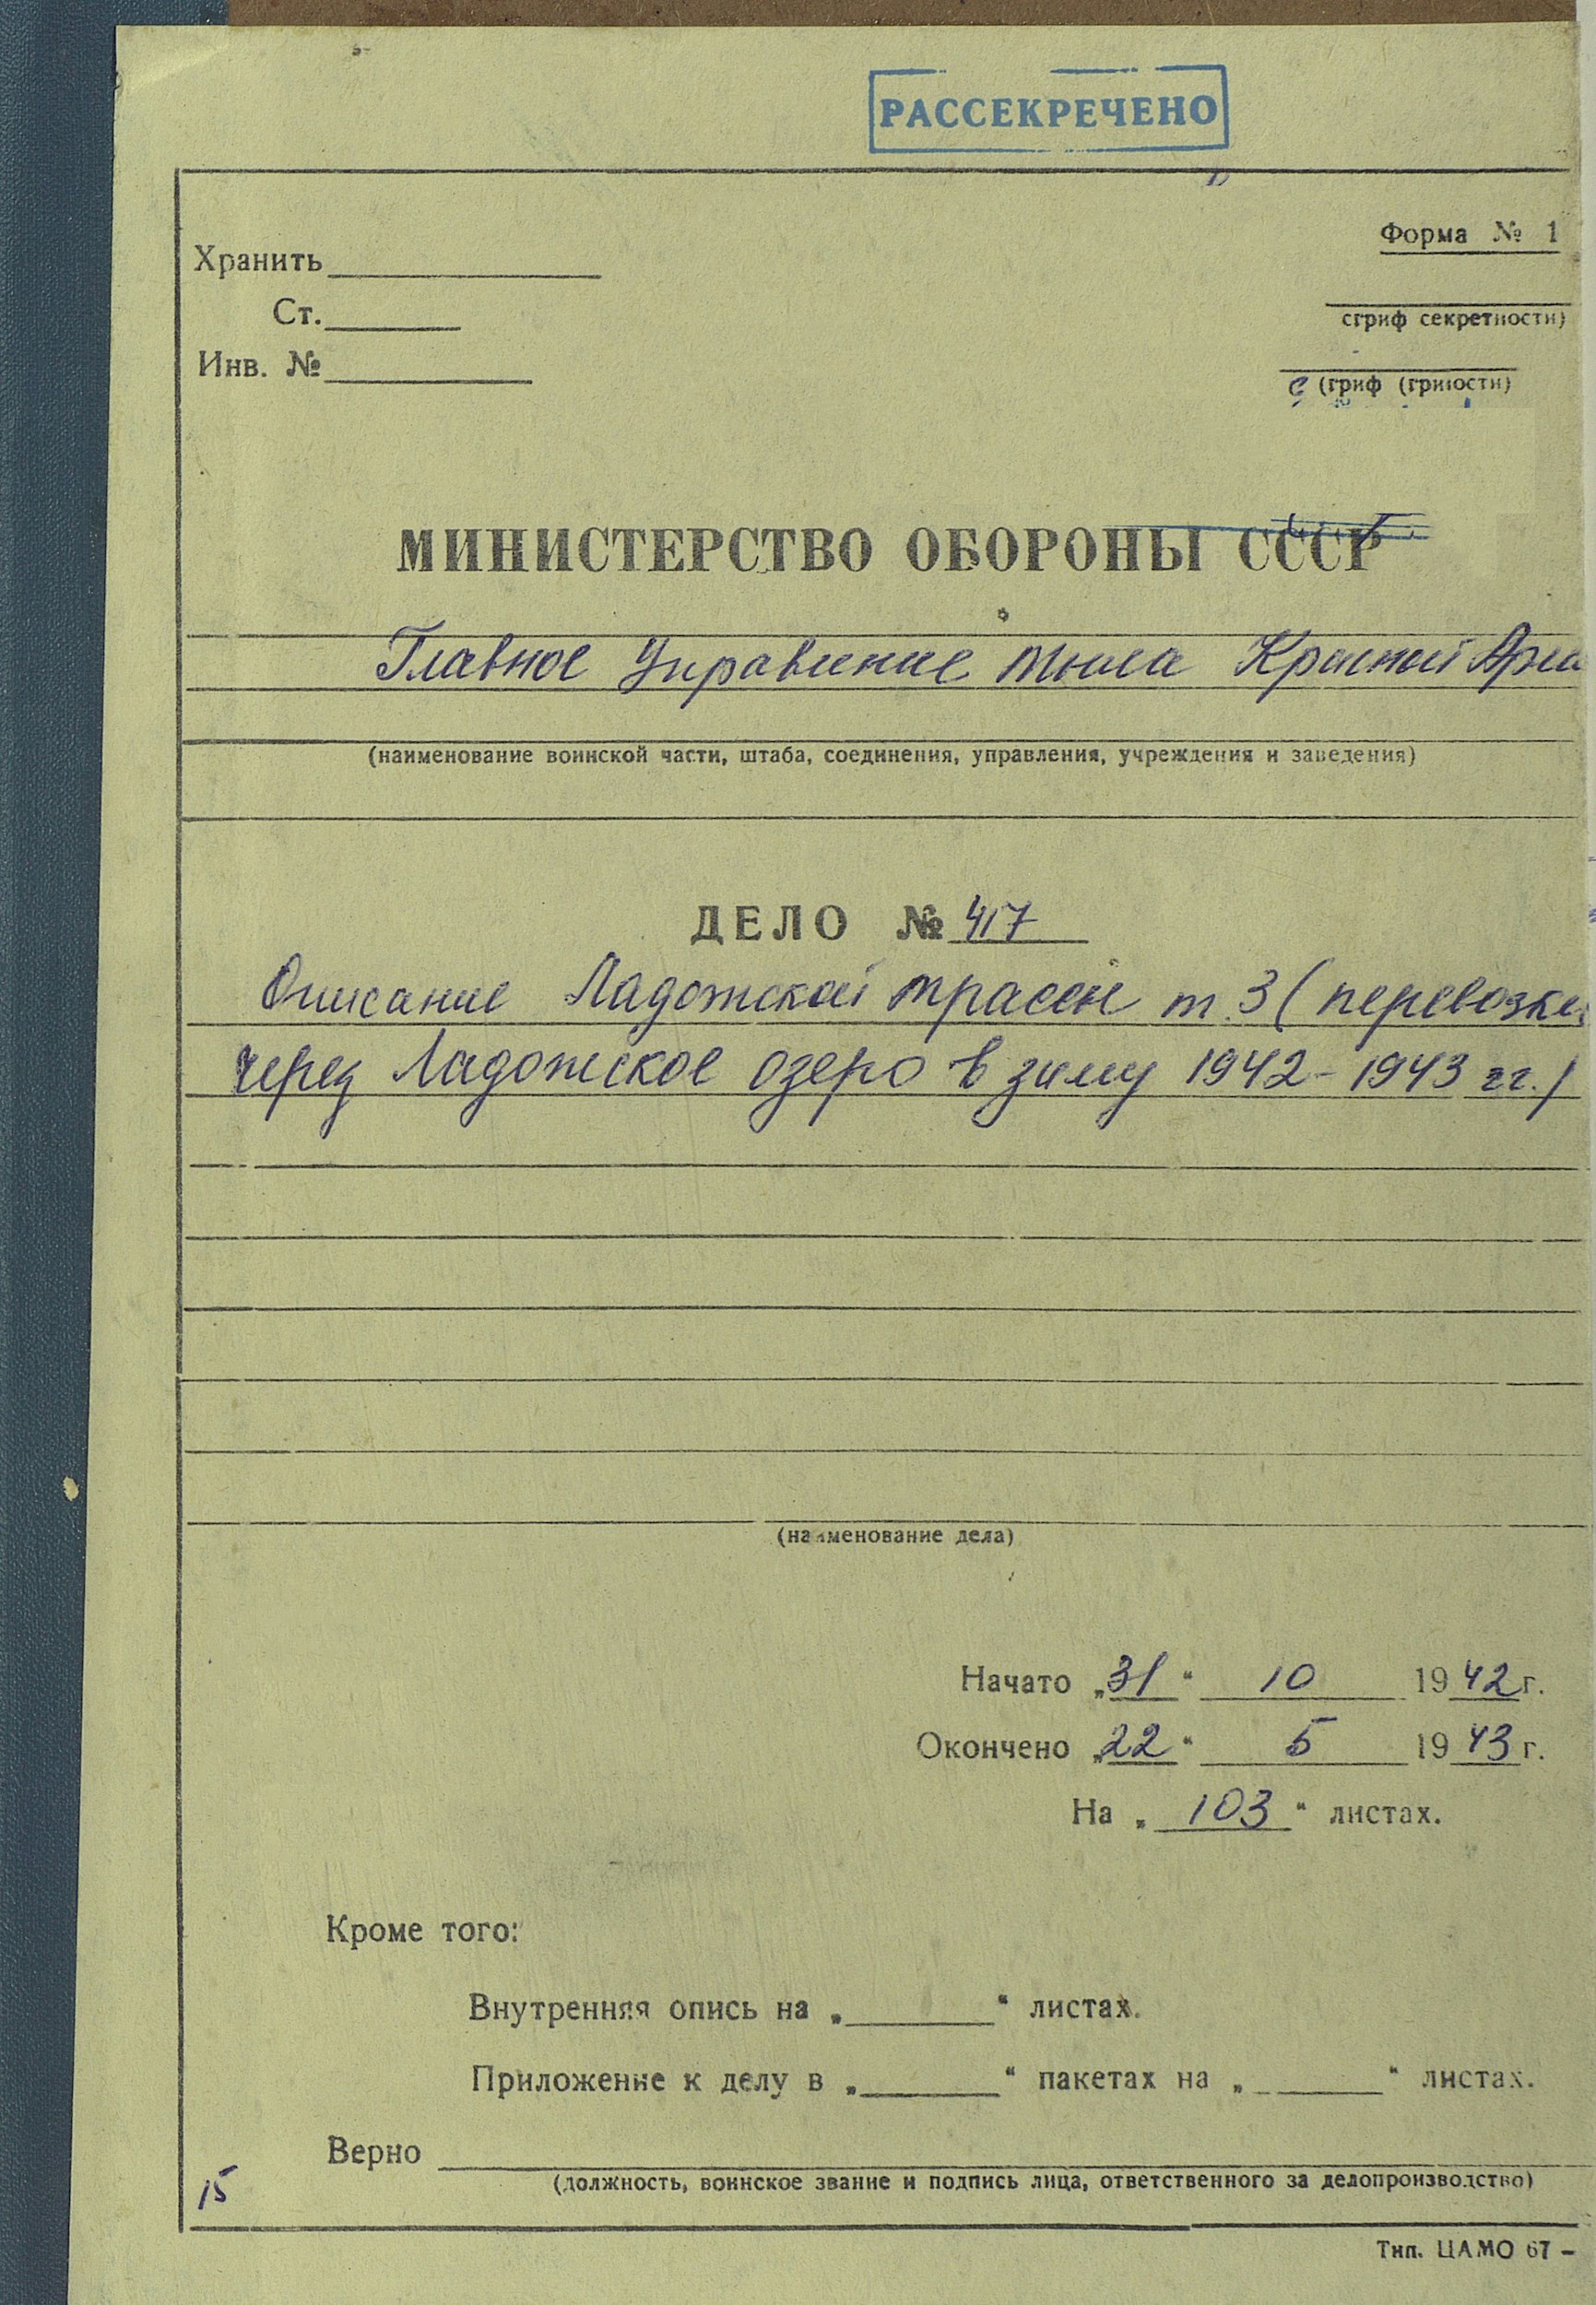 РАССЕКРЕЧЕНО
Форма № 1
Хранить
(гриф секретности)
Ст.
Инв. №
МИНИСТЕРСТВО ОБОРОНЫ СССР
Главное Управление тыла Красной Арми
(наименование воинской части, штаба, соединения, управления, учреждения и заведения)
ДЕЛО № 417
Описание Ладожской трассы т. 3 (перевозки
через Ладожское озеро в зиму 1942-1943 гг.)
(наименование дела)
Начато „31“ 10 1942 г.
Окончено „22“ 5 1943 г.
На „103“ листах.
Кроме того:
Внутренняя опись на „ “ листах.
Приложение к делу в „ “ пакетах на „ “ листах.
Верно
(должность, воинское звание и подпись лица, ответственного за делопроизводство)
15
Тип. ЦАМО 67 –